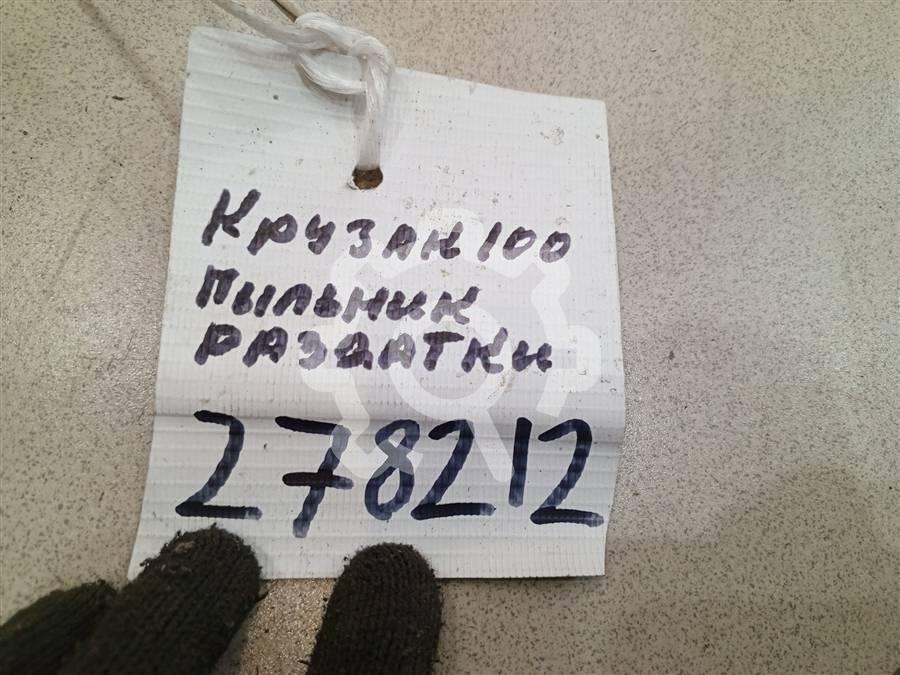 Крузак 100
пыльник
раздатки
278212